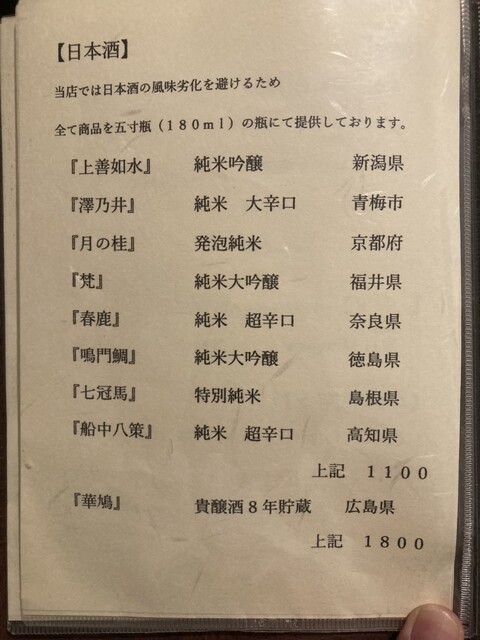 【日本酒】
当店では日本酒の風味劣化を避けるため
全て商品を五寸瓶(180ml)の瓶にて提供しております。
『上善如水』 純米吟醸 新潟県
『澤乃井』 純米 大辛口 青梅市
『月の桂』 発泡純米 京都府
『梵』 純米大吟醸 福井県
『春鹿』 純米 超辛口 奈良県
『鳴門鯛』 純米大吟醸 徳島県
『七冠馬』 特別純米 島根県
『船中八策』 純米 超辛口 高知県
上記 1100
『華鳩』 貴醸酒8年貯蔵 広島県
上記 1800